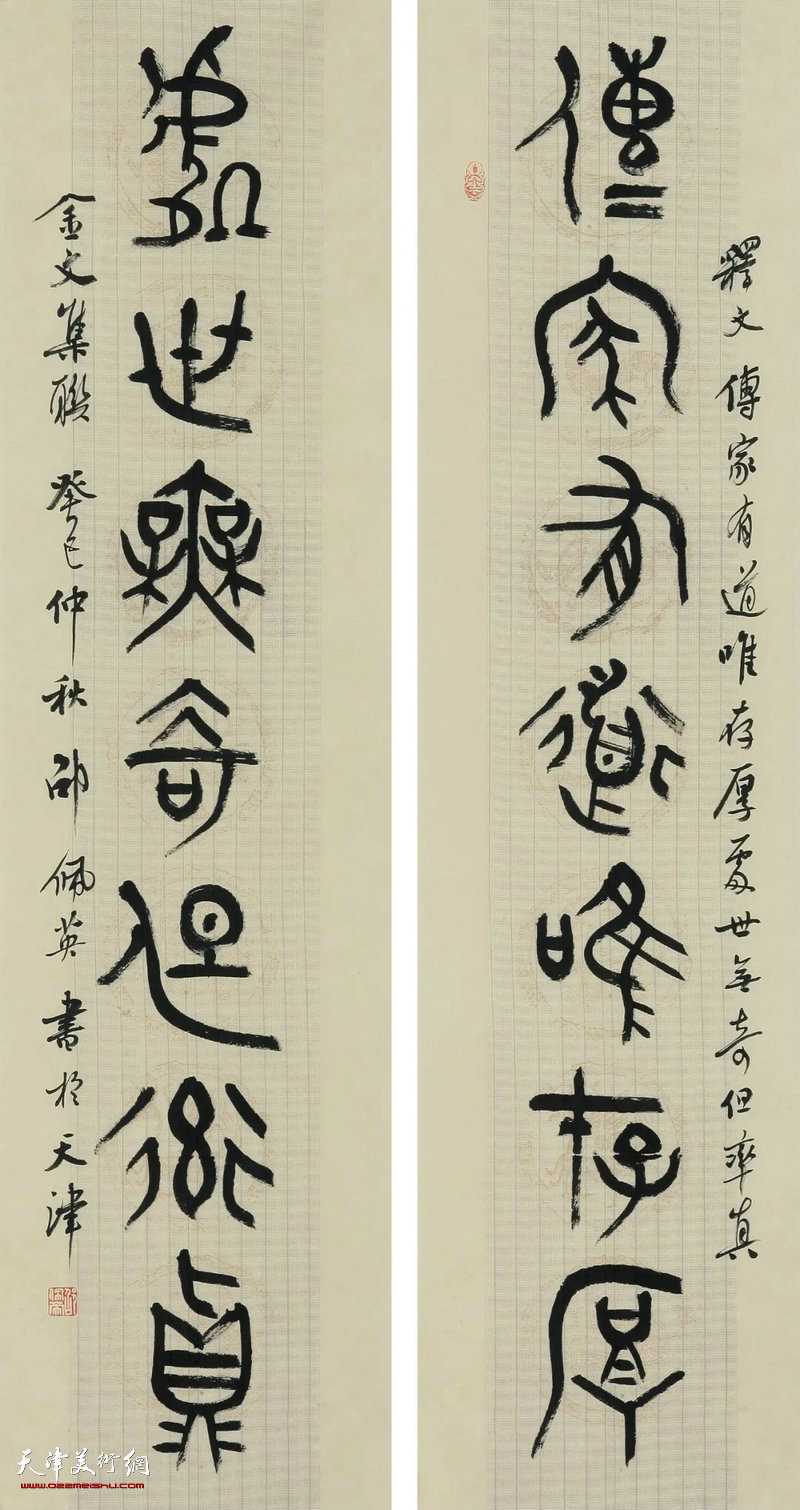 釋文 傳家有道唯存厚處世無奇但率真
傳家有道唯存厚
處世無奇但率真
金文集聯 癸巳仲秋 邵佩英書於天津
天津美術網
www.022meishu.com